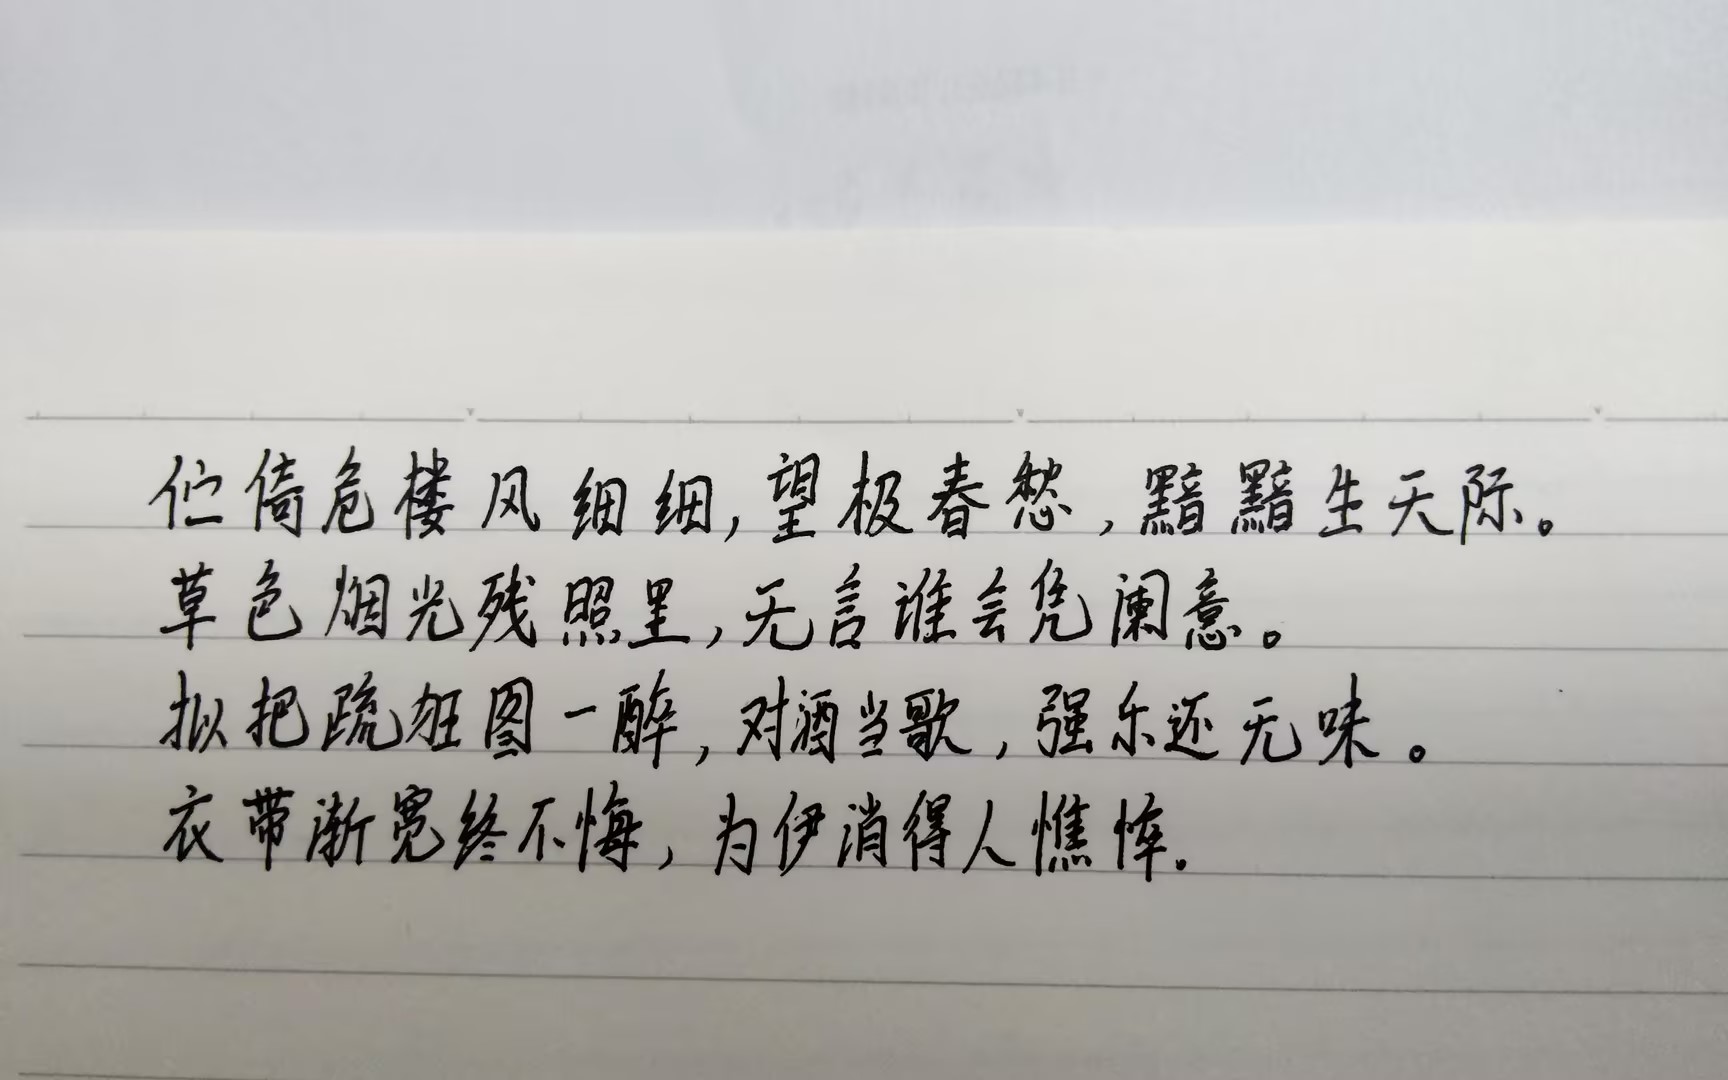 伫倚危楼风细细,望极春愁,黯黯生天际。
草色烟光残照里,无言谁会凭阑意。
拟把疏狂图一醉,对酒当歌,强乐还无味。
衣带渐宽终不悔,为伊消得人憔悴。